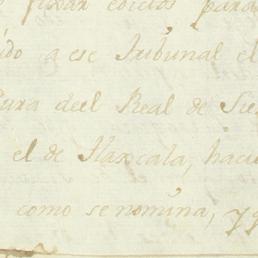 fixar edictos para
ido a ese Tribunal el
Cura deel Real de Sie
el de Tlaxcala, haci
como se nomina, y q